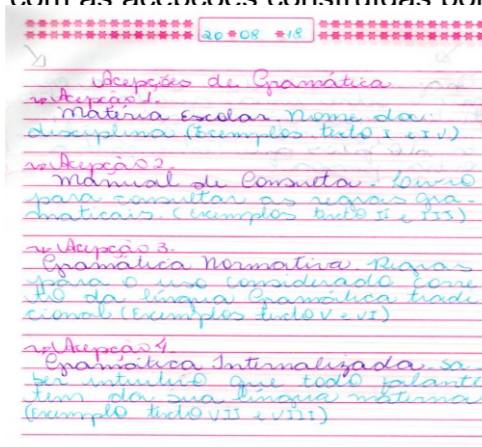 com as acepções construídas por
20 08 18
Acepções de Gramática
Acepção 1.
Matéria Escolar. Nome da
disciplina (Exemplos texto I e IV)
Acepção 2.
Manual de Consulta. Livro
para consultar as regras gra-
maticais. (exemplos texto II e III)
Acepção 3.
Gramática Normativa. Regras
para o uso considerado corre
to da língua Gramática tradi
cional (Exemplos texto V e VI)
Acepção 4.
Gramática Internalizada. sa
ber intuitivo que todo falante
tem da sua língua materna
(exemplo texto VII e VIII)